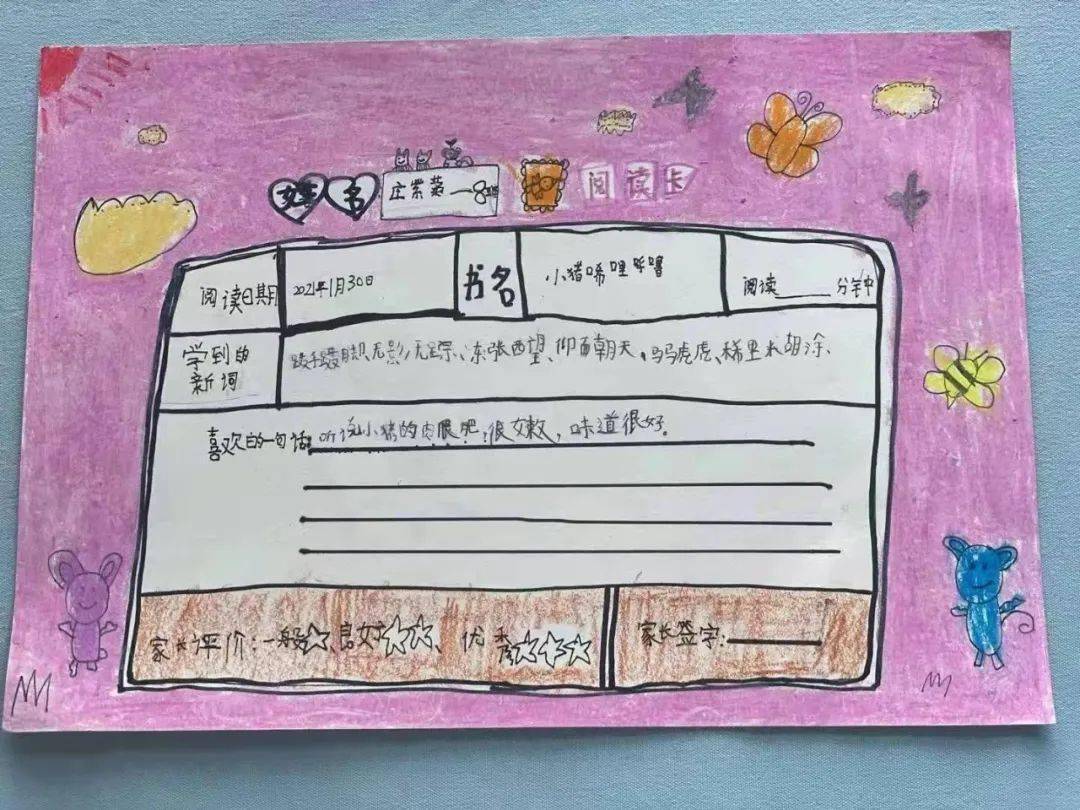 姓名 庄紫菱 一8班 阅读卡
阅读日期 2021年1月30日 书名 小猪唏哩呼噜 阅读______分钟
学到的新词 蹑手蹑脚、无影无踪、东张西望、仰面朝天、马马虎虎、稀里木胡涂、
喜欢的一句话: 听说小猪的肉很肥,很嫩,味道很好。
家长评价:一般☆、良好☆☆、优秀☆☆☆ 家长签字:______